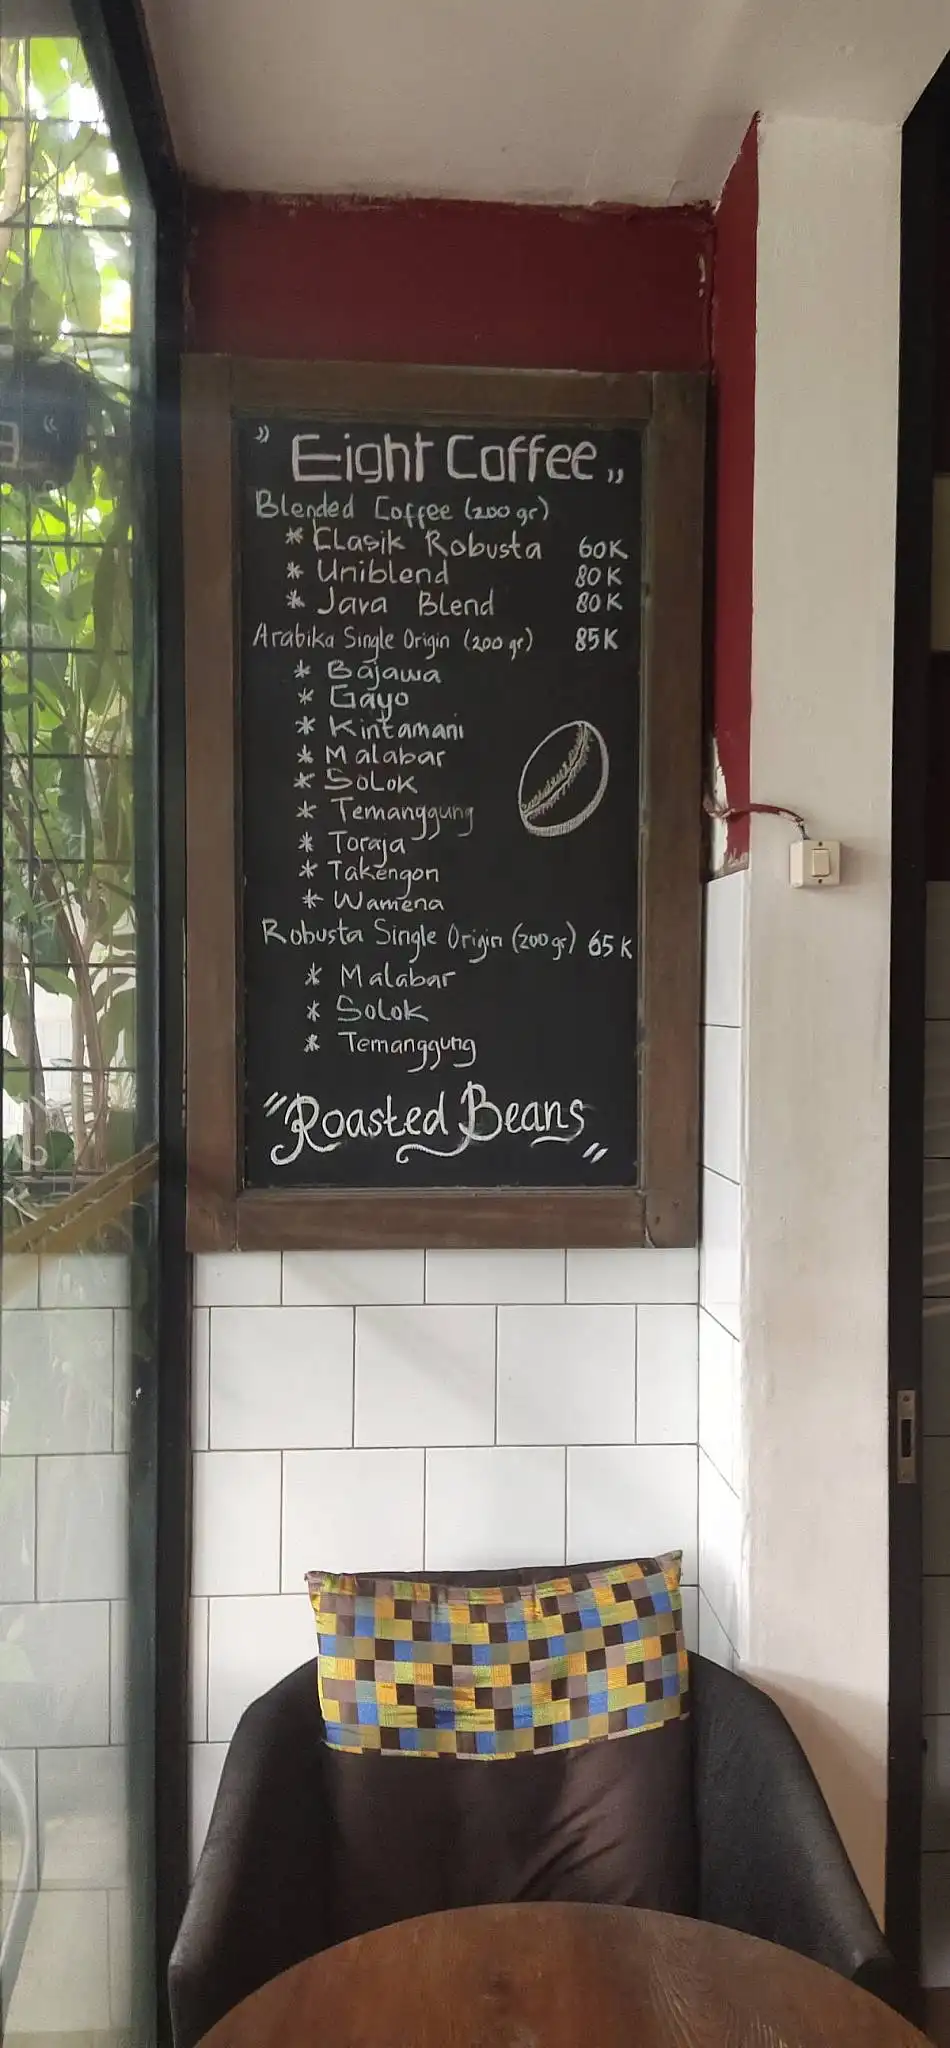 " Eight Coffee "
Blended Coffee (200 gr)
* Clasik Robusta 60K
* Uniblend 80K
* Java Blend 80K
Arabika Single Origin (200 gr) 85K
* Bajawa
* Gayo
* Kintamani
* Malabar
* Solok
* Temanggung
* Toraja
* Takengon
* Wamena
Robusta Single Origin (200 gr) 65K
* Malabar
* Solok
* Temanggung
"Roasted Beans"